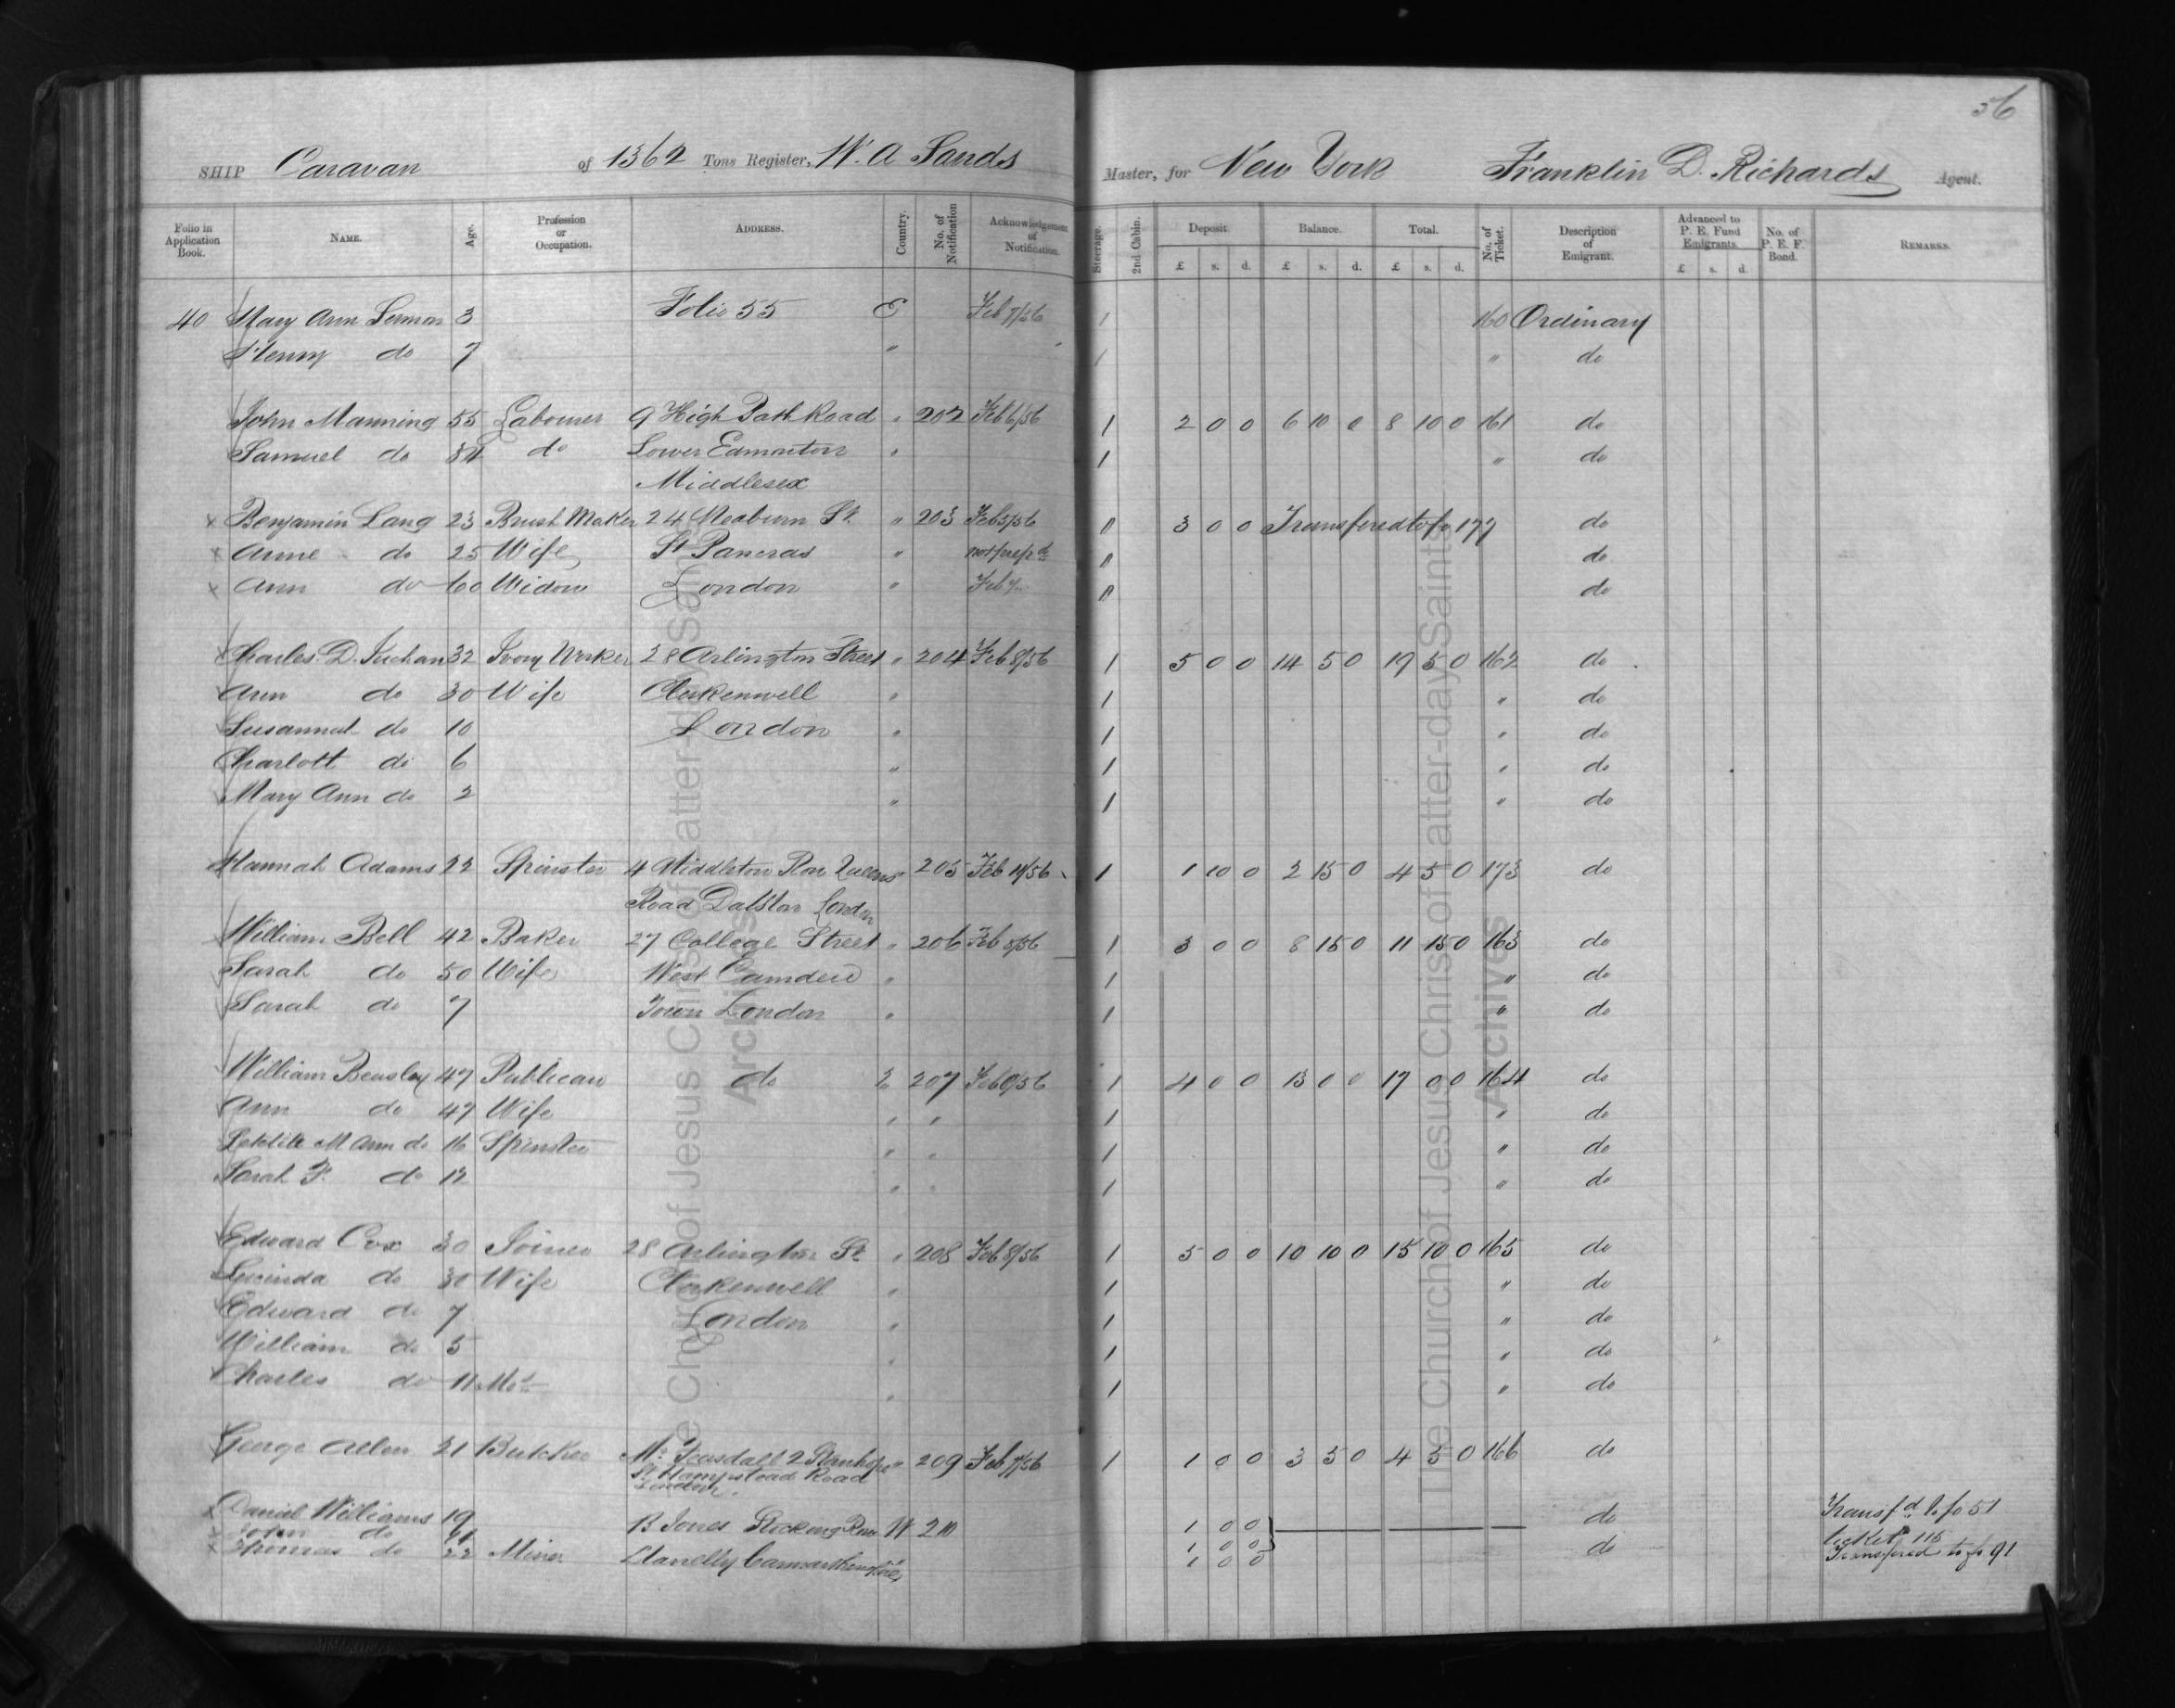 56
SHIP Caravan of 1362 Tons Register, W. A Sands Master, for New York Franklin D. Richards Agent.
Folio in Application Book. NAME. Age. Profession or Occupation. ADDRESS. Country. No. of Notification Acknowledgement of Notification. Steerage. 2nd Cabin. Deposit Balance. Total. No. of Ticket. Description of Emigrant. Advanced to P. E. Fund Emigrants. No. of P. E. F. Bond. REMARKS.
£ s. d. £ s. d. £ s. d. £ s. d.
40 Mary Ann 3 Folio 55 E Feb 7/56 1 160 Ordinary
Henry do 7 " 1 " do
John Manning 55 Labourer 9 High Path Road " 202 Feb 6/56 1 2 0 0 6 10 0 8 10 0 161 do
Samuel do do Lower Edmonton " 1 " do
Middlesex
x Benjamin Lang 23 Brush Maker 24 St " 203 Feb 5/56 3 0 0 Transfered to fo 177 do
x Anne do 25 Wife St Pancras " not prepd do
x Ann do 60 Widow London " Feb do
Charles D. 32 Ivory Worker 28 Arlington Street " 204 Feb 8/56 1 5 0 0 14 5 0 19 5 0 162 do
Ann do 30 Wife Clerkenwell " 1 " do
Susannah do 10 London " 1 " do
Charlott do 6 " 1 " do
Mary Ann do 2 " 1 " do
Hannah Adams 22 Spinster 4 Middleton Row Queens " 205 Feb 11/56 1 1 10 0 2 15 0 4 5 0 173 do
Road Dalston London
William Bell 42 Baker 27 College Street " 206 Feb 8/56 1 3 0 0 8 15 0 11 15 0 163 do
Sarah do 50 Wife West Camden " 1 " do
Sarah do 7 Town London " 1 " do
William Beasley 47 Publican do E 207 Feb 8/56 1 4 0 0 13 0 0 17 0 0 164 do
Ann do 47 Wife " " 1 " do
M Ann do 16 Spinster " " 1 " do
Sarah F. do 12 " " 1 " do
Edward Cox 30 Joiner 28 Arlington St " 208 Feb 8/56 1 5 0 0 10 10 0 15 10 0 165 do
Lucinda do 30 Wife Clerkenwell " 1 " do
Edward do 7 London " 1 " do
William do 5 " 1 " do
Charles do 11 Mos " 1 " do
George Allen 21 Butcher Mr Teasdall 2 Stanhope " 209 Feb 7/56 1 1 0 0 3 5 0 4 5 0 166 do
St Hampstead Road
London.
x Daniel Williams 19 B Jones Stocking Row W 210 1 0 0 do Transfd to fo 51
x John do 1 0 0 ticket 115
x Thomas do 22 Miner Llanelly Carmarthenshire 1 0 0 do Transfered to fo 91
The Church of Jesus Christ of Latter-day Saints
Archives
The Church of Jesus Christ of Latter-day Saints
Archives